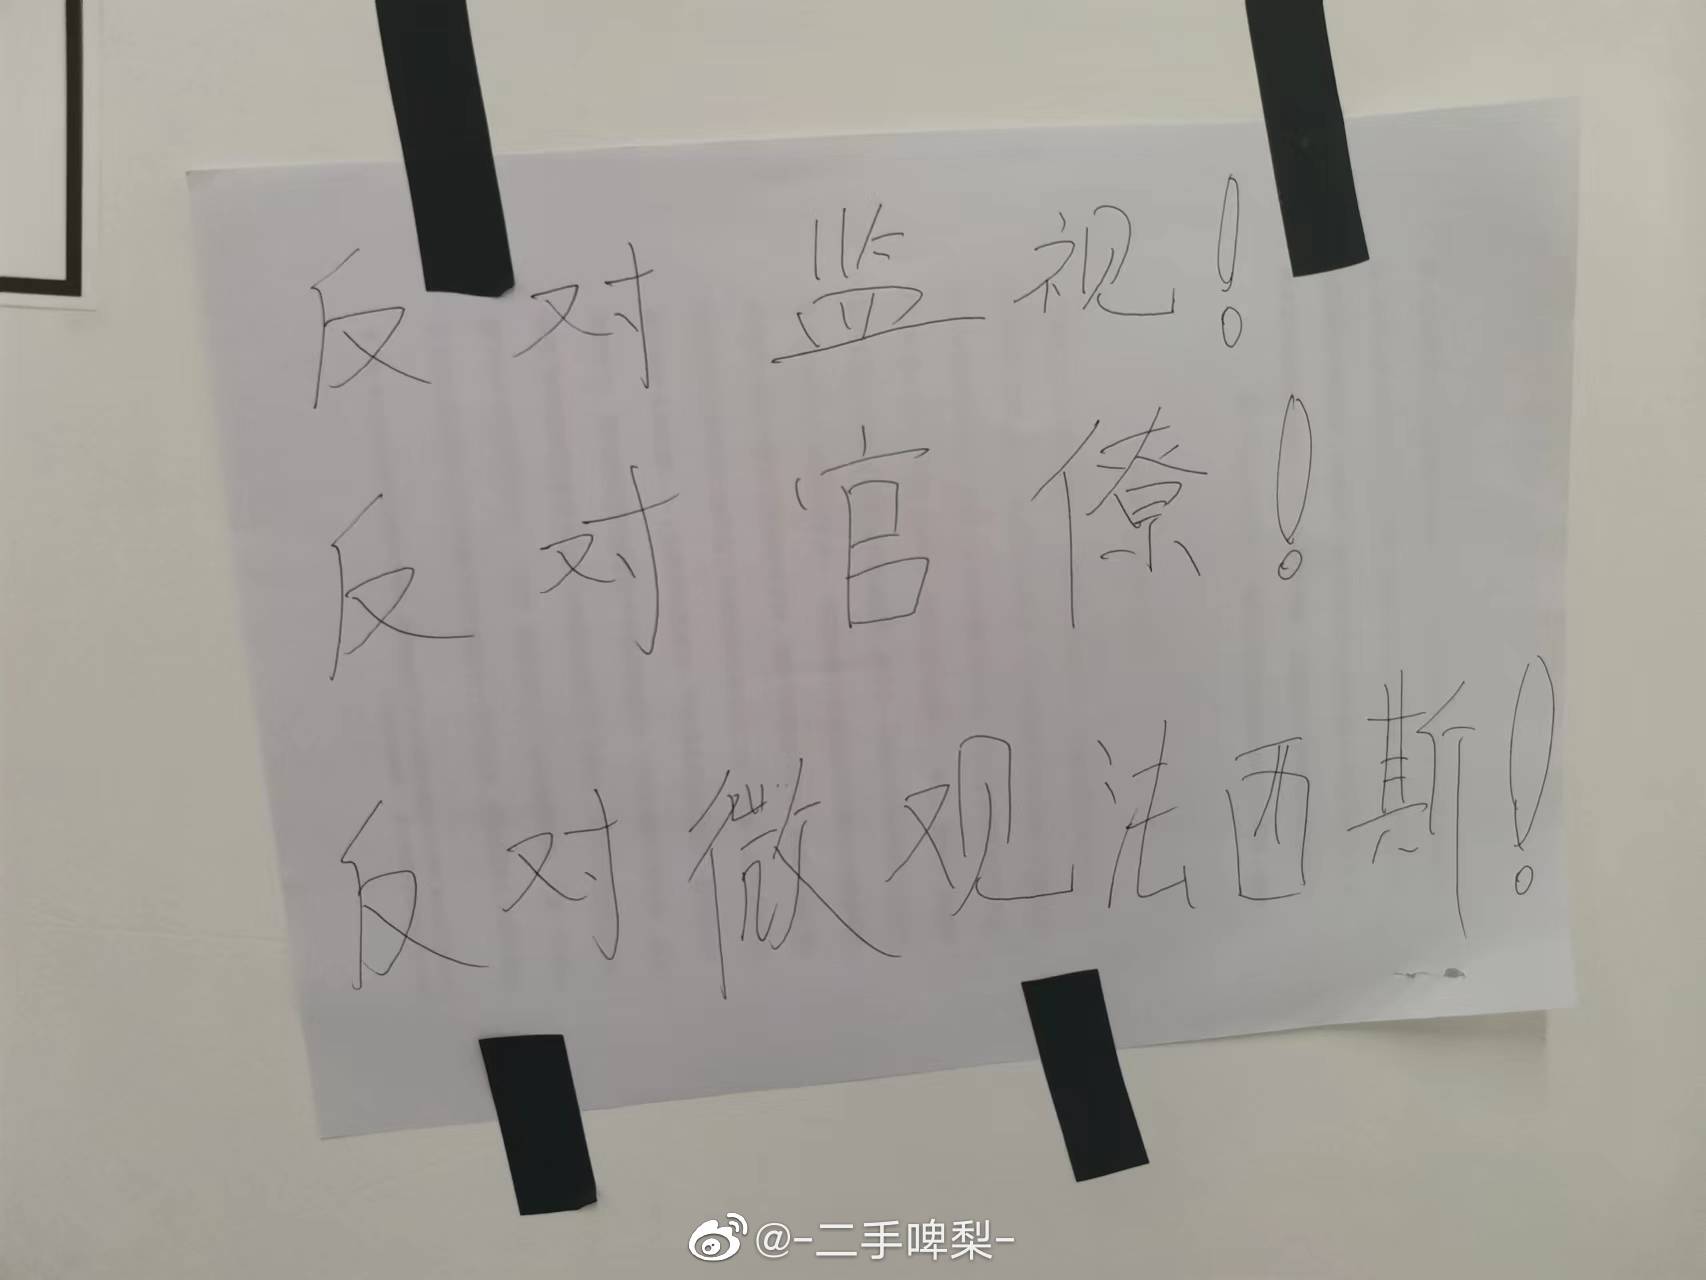 反对监视!
反对官僚!
反对微观法西斯!
@-二手啤梨-